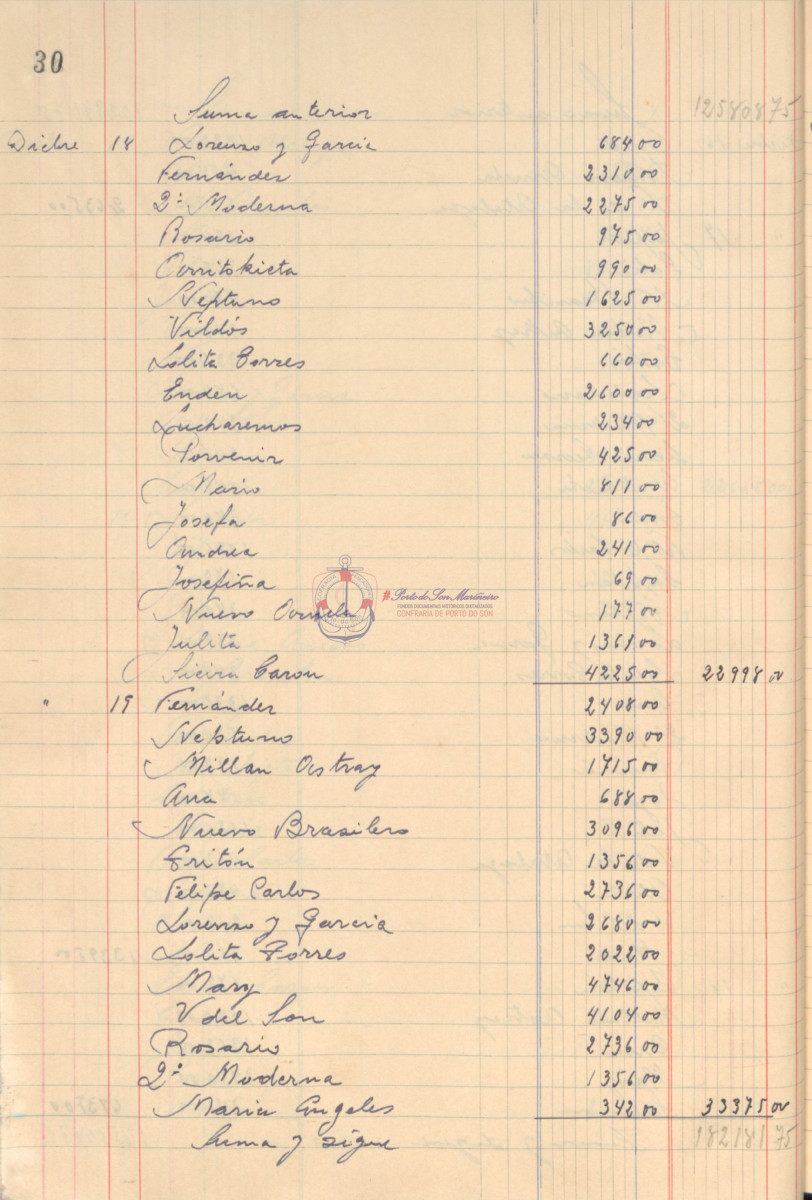 30
Suma anterior 125808 75
Dicbre 18 Lorenzo y Garcia 684 00
Fernández 2310 00
2ª Moderna 2275 00
Rosario 975 00
Arritokieta 990 00
Neptuno 1625 00
Vildós 3250 00
Lolita Torres 660 00
Enden 2600 00
Lucharemos 234 00
Porvenir 425 00
Mario 811 00
Josefa 86 00
Andrea 241 00
Josefiña 69 00
Nuevo 177 00
Julita 1361 00
Sieira Caron 4225 00 22998 00
" 19 Fernández 2408 00
Neptuno 3390 00
Millan Astray 1715 00
Ana 688 00
Nuevo Brasilero 3096 00
Tritón 1356 00
Felipe Carlos 2736 00
Lorenzo y Garcia 2680 00
Lolita Torres 2022 00
Mary 4746 00
V del Son 4104 00
Rosario 2736 00
2ª Moderna 1356 00
Maria Angeles 342 00 33375 00
Suma y sigue 182181 75
Porto do Son Mariñeiro
FONDOS DOCUMENTAIS HISTÓRICOS DIXITALIZADOS
CONFRARIA DE PORTO DO SON